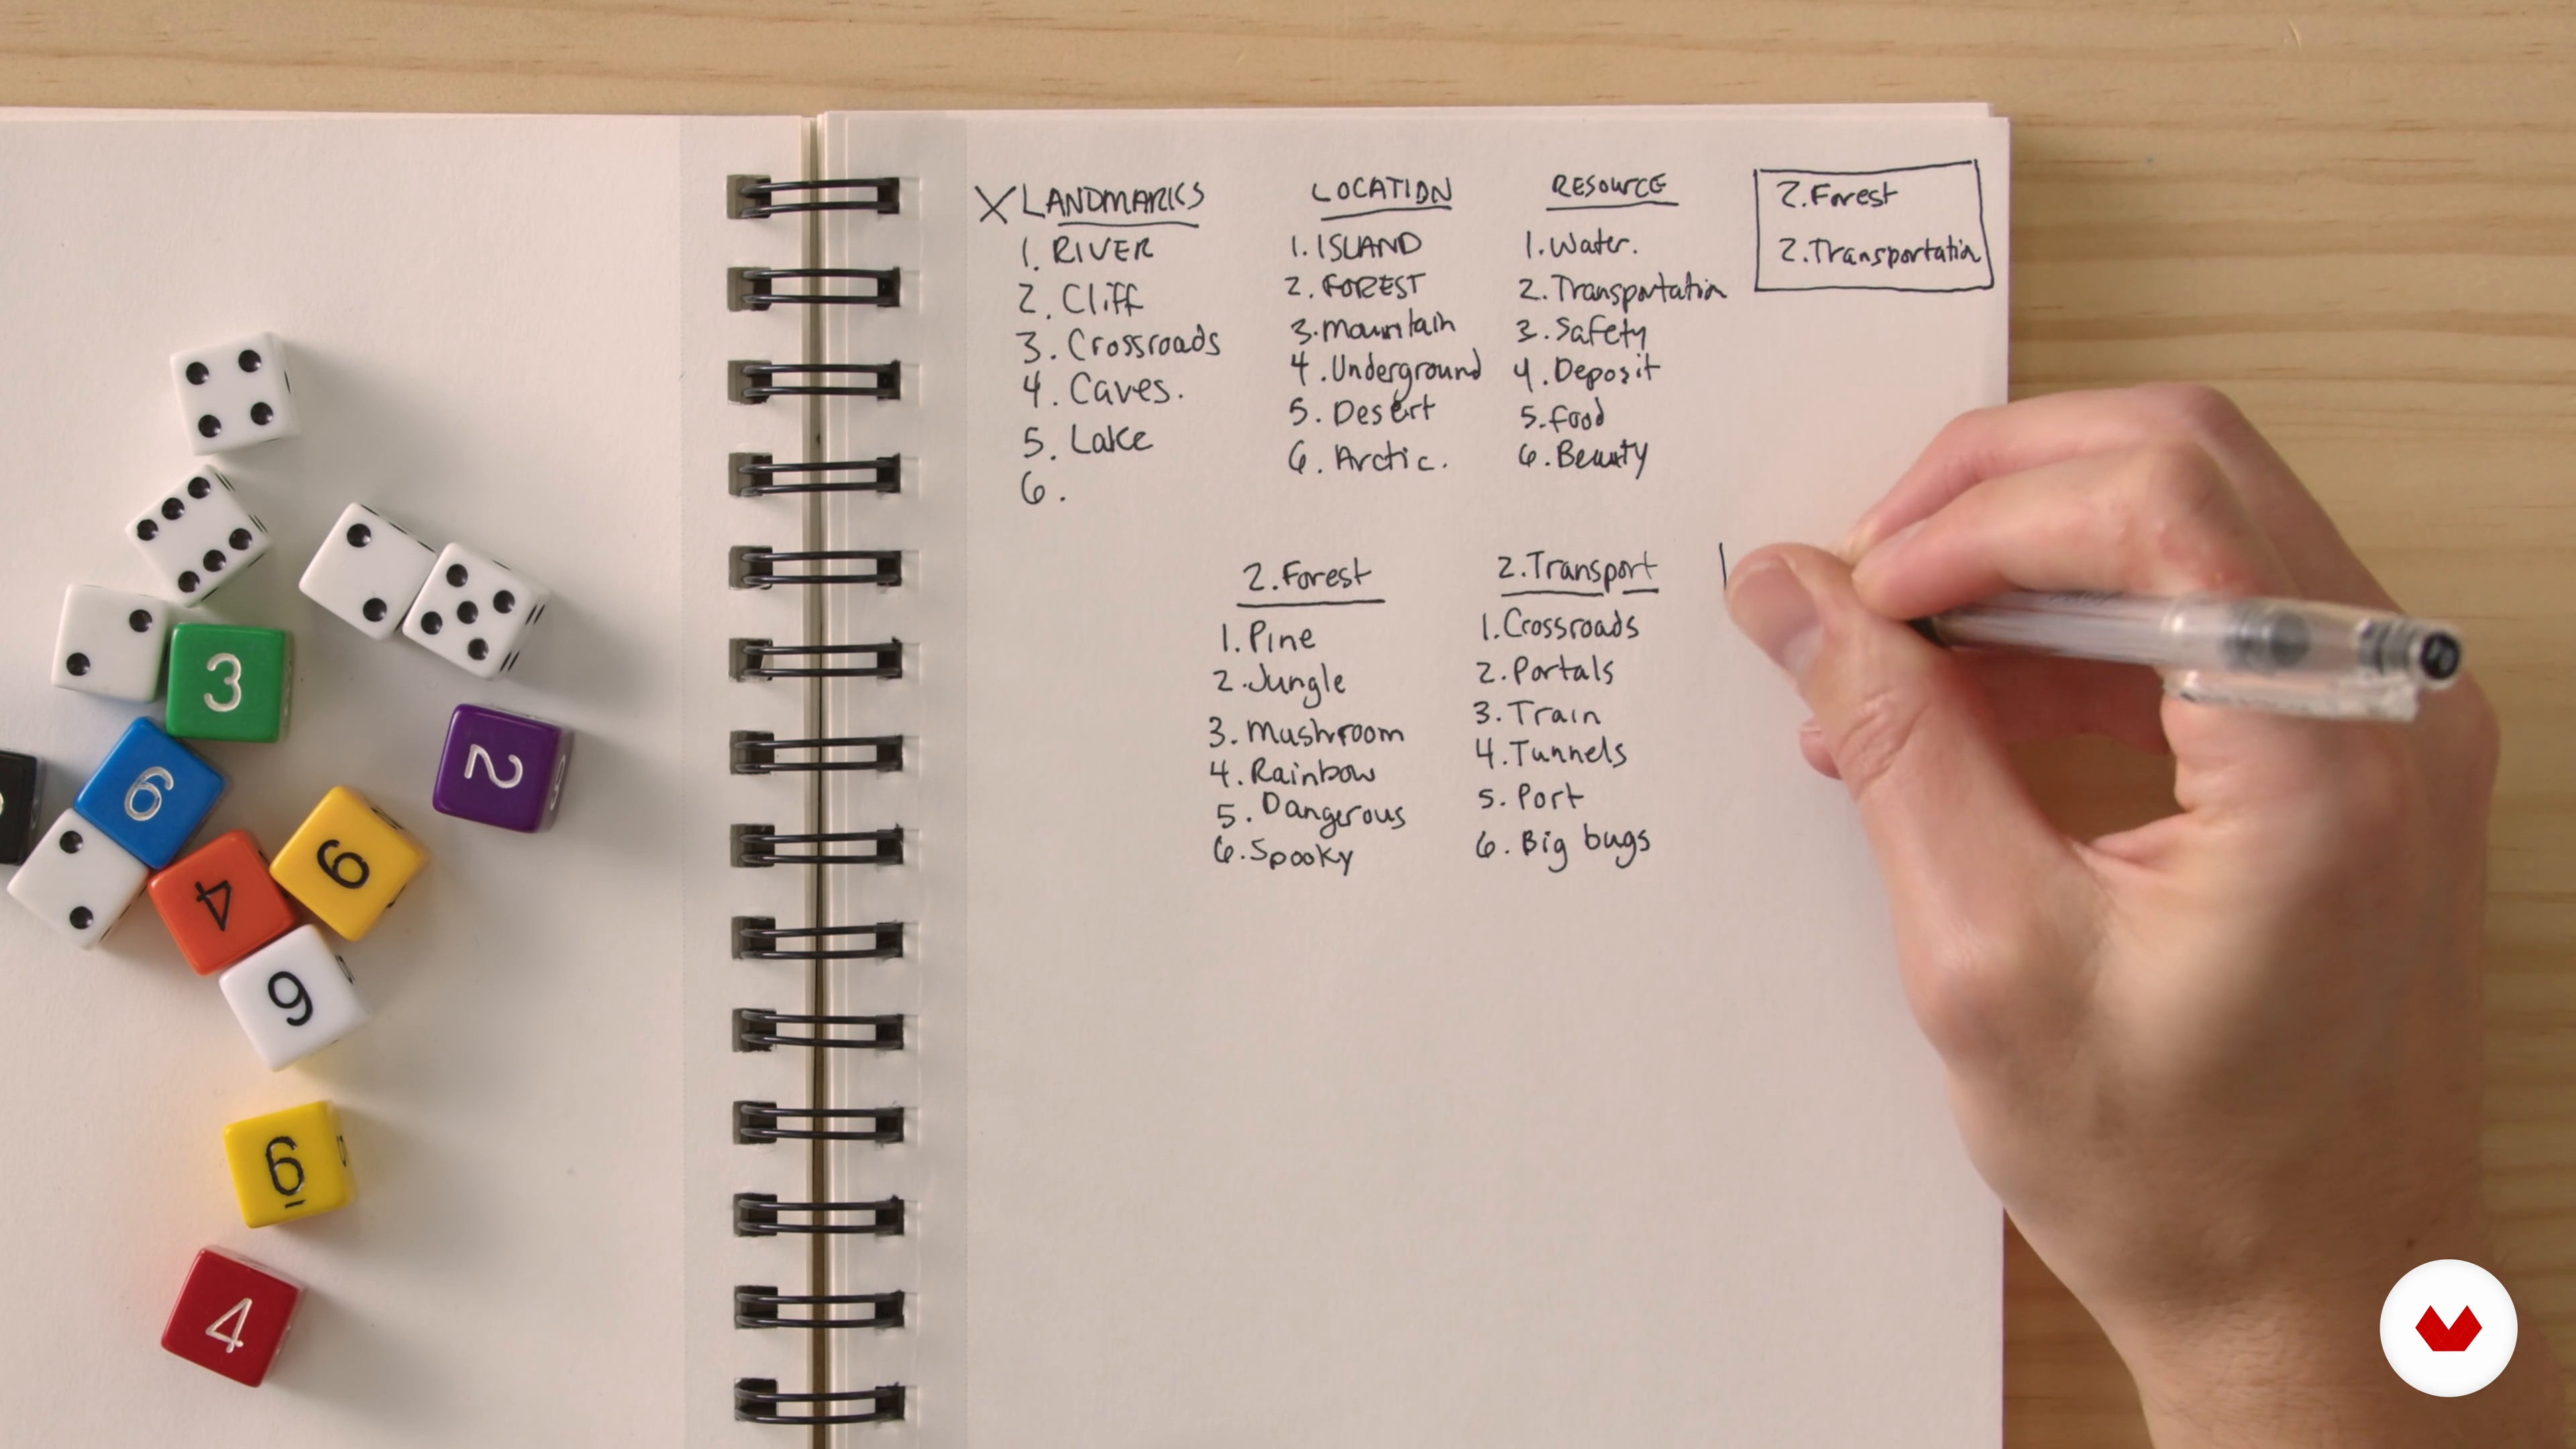 X LANDMARKS
1. RIVER
2. Cliff
3. Crossroads
4. Caves.
5. Lake
6.
LOCATION
1. ISLAND
2. FOREST
3. mountain
4. Underground
5. Desert
6. Arctic.
RESOURCE
1. Water.
2. Transportation
3. Safety
4. Deposit
5. food
6. Beauty
2. Forest
2. Transportation
2. Forest
1. Pine
2. Jungle
3. Mushroom
4. Rainbow
5. Dangerous
6. Spooky
2. Transport
1. Crossroads
2. Portals
3. Train
4. Tunnels
5. Port
6. Big bugs
3
6
2
4
6
6
6
4